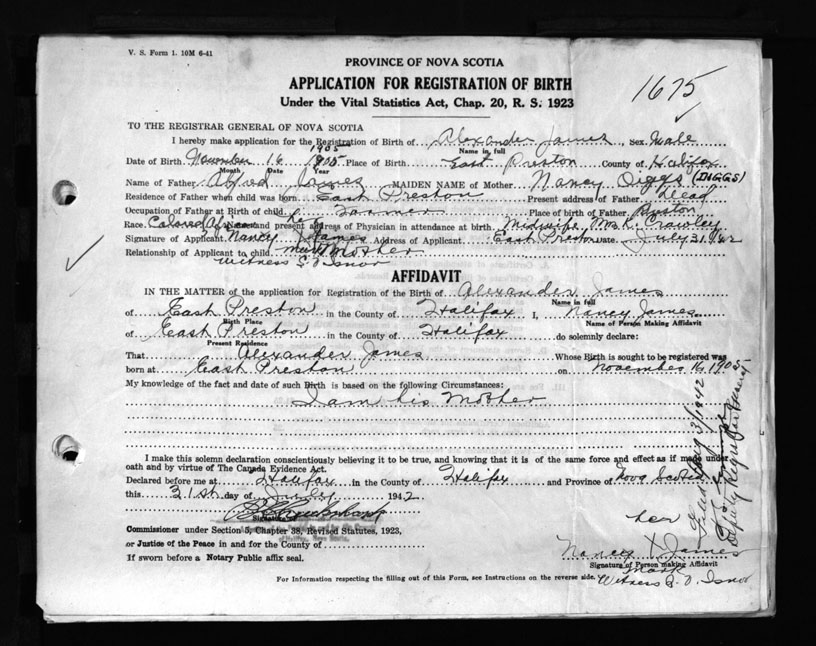 V. S. Form 1. 10M 6-41
PROVINCE OF NOVA SCOTIA
APPLICATION FOR REGISTRATION OF BIRTH
Under the Vital Statistics Act, Chap. 20, R. S. 1923
1675
TO THE REGISTRAR GENERAL OF NOVA SCOTIA
I hereby make application for the Registration of Birth of Alexander James, Sex Male
Name in full
1905
Date of Birth November 16 1905 Place of Birth East Preston County of Halifax
Month Date Year
Name of Father Alfred James MAIDEN NAME of Mother Nancy Diggs (DIGGS)
Residence of Father when child was born East Preston Present address of Father Dead
Occupation of Father at Birth of child Farmer Place of birth of Father Preston
Race. Colored African Name and present address of Physician in attendance at birth. Midwife Mrs. Crawley
her
Signature of Applicant Nancy X James Address of Applicant East Preston Date July 31/42
Relationship of Applicant to child mark Mother
Witness G. O. Isnor
AFFIDAVIT
IN THE MATTER of the application for Registration of the Birth of Alexander James
Name in full
of East Preston in the County of Halifax I, Nancy James
Birth Place Name of Person Making Affidavit
of East Preston in the County of Halifax do solemnly declare:
Present Residence
That Alexander James Whose Birth is sought to be registered was
born at East Preston on November 16, 1905
My knowledge of the fact and date of such Birth is based on the following Circumstances:
I am his Mother
I make this solemn declaration conscientiously believing it to be true, and knowing that it is of the same force and effect as if made under
oath and by virtue of The Canada Evidence Act.
Declared before me at Halifax in the County of Halifax and Province of Nova Scotia
this 31st day of July 1942
Signature
Commissioner under Section 5, Chapter 38, Revised Statutes, 1923,
or Justice of the Peace in and for the County of
If sworn before a Notary Public affix seal.
her
Nancy X James
Signature of Person making Affidavit
mark
Witness G. O. Isnor
For Information respecting the filling out of this Form, see Instructions on the reverse side.
Filed Aug 3/1942
Deputy Registrar